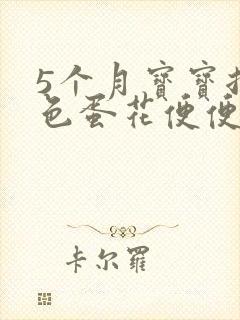 5个月寶寶拉
色蛋花便便
卡尔羅